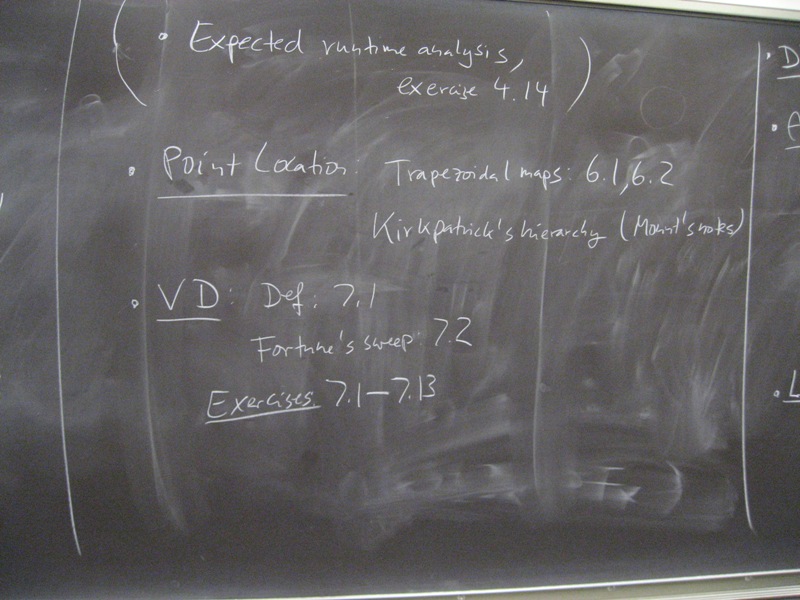 ( • Expected runtime analysis,
exercise 4.14 )
• Point Location: Trapezoidal maps: 6.1, 6.2
Kirkpatrick's hierarchy (Mount's notes)
• VD: Def: 7.1
Fortune's sweep: 7.2
Exercises 7.1-7.13
• D
• A
• L